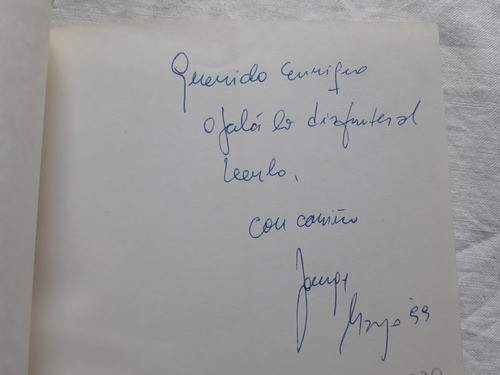 Querido Enrique
Ojalá lo disfrutes al
leerlo,
con cariño
Jorge
Mayo '99